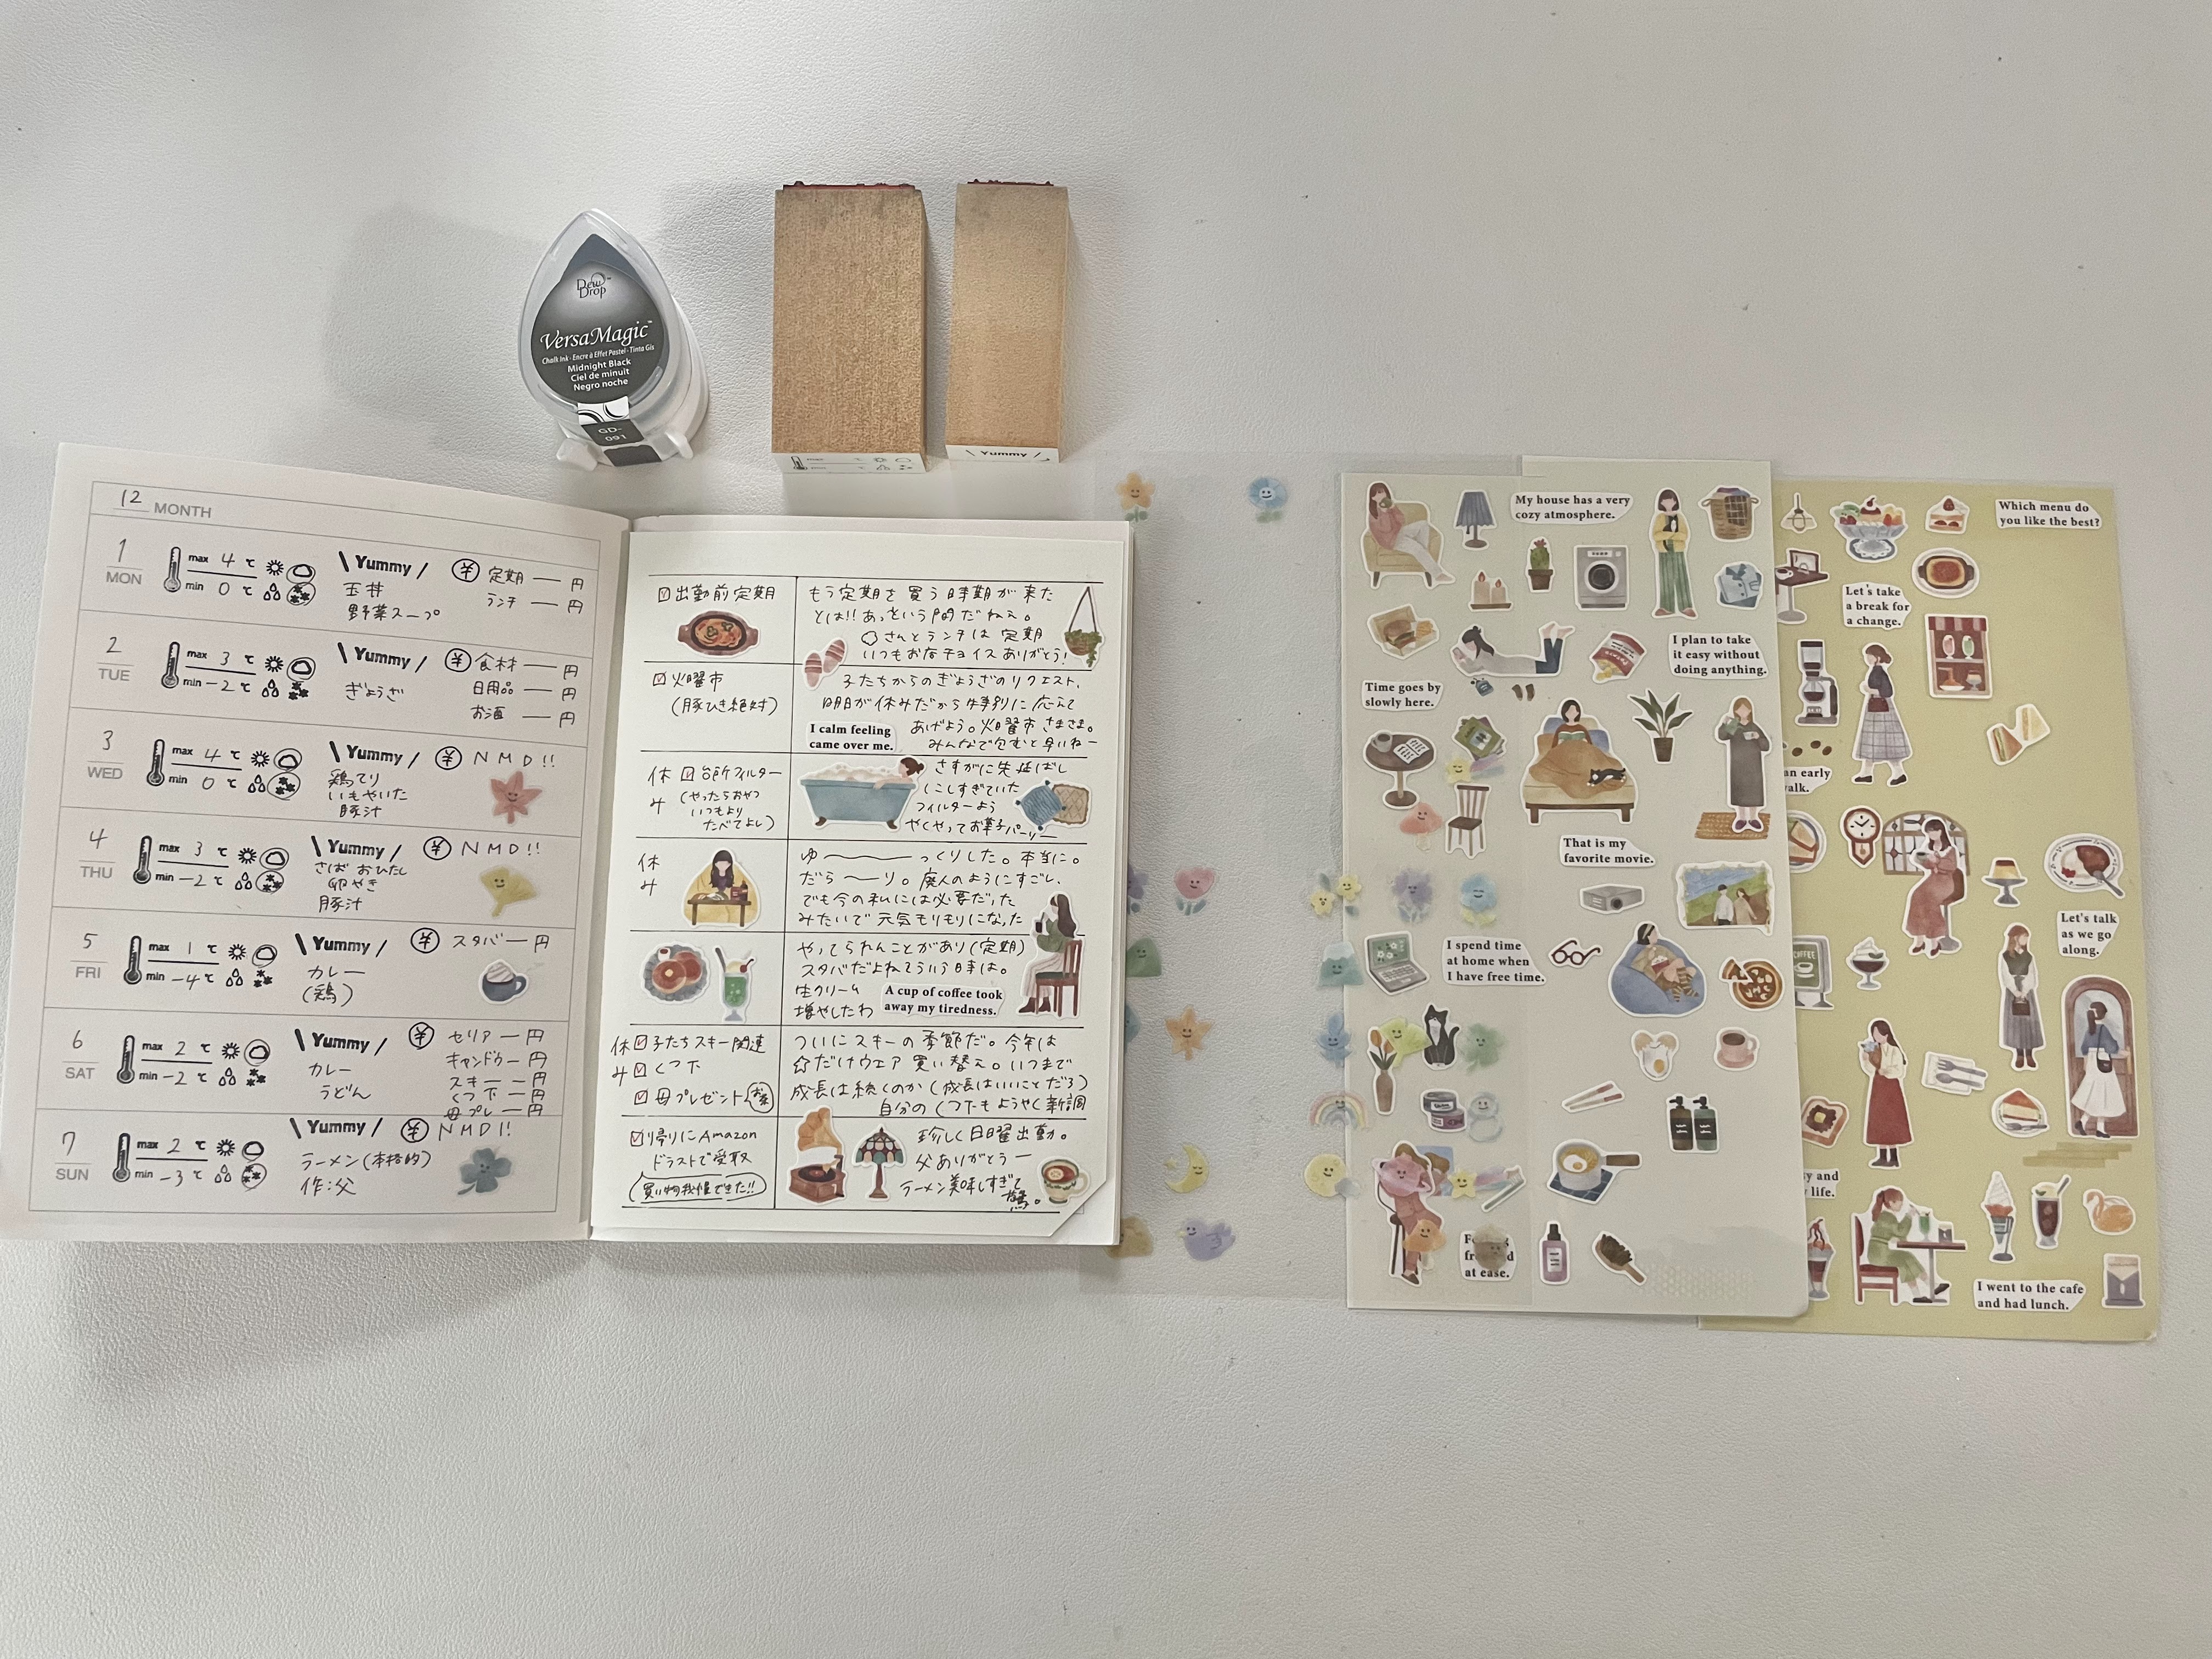 Dew Drop
VersaMagic™
Chalk Ink · Encre à Effet Pastel · Tinta Gis
Midnight Black
Ciel de minuit
Negro noche
GD-
091
\ Yummy /
12 MONTH
1 MON
max 4 ℃
min 0 ℃
\ Yummy /
玉丼
野菜スープ
¥ 定期 ― 円
ランチ ― 円
2 TUE
max 3 ℃
min -2 ℃
\ Yummy /
ぎょうざ
¥ 食材 ― 円
日用品 ― 円
お酒 ― 円
3 WED
max 4 ℃
min 0 ℃
\ Yummy /
鶏てり
いもやいた
豚汁
¥ NMD!!
4 THU
max 3 ℃
min -2 ℃
\ Yummy /
さば おひたし
卵やき
豚汁
¥ NMD!!
5 FRI
max 1 ℃
min -4 ℃
\ Yummy /
カレー
(鶏)
¥ スタバ ― 円
6 SAT
max 2 ℃
min -2 ℃
\ Yummy /
カレー
うどん
¥ セリア ― 円
キャンドゥ ― 円
スキー ― 円
くつ下 ― 円
母プレ ― 円
7 SUN
max 2 ℃
min -3 ℃
\ Yummy /
ラーメン(本格的)
作:父
¥ NMD!!
出勤前定期
もう定期を買う時期が来た
とは!! あっという間だねぇ。
さんとランチは定期
いつもお店チョイスありがとう!
火曜市
(豚ひき絶対)
子たちからのぎょうざのリクエスト、
明日が休みだから特別に応えて
あげよう。火曜市さまさま。
みんなで包むと早いねー
I calm feeling
came over me.
休み
台所フィルター
(やったらおやつ
いつもより
たべてよし)
さすがに先延ばし
にしすぎていた
フィルターよう
やくやってお菓子パーリー
休み
ゆ〜〜っくりした。本当に。
だら〜り。廃人のようにすごし、
でも今の私には必要だった
みたいで元気もりもりになった
やってられんことがあり(定期)
スタバだよねこういう時は。
生クリーム
増やしたわ
A cup of coffee took
away my tiredness.
休み
子たちスキー関連
くつ下
母プレゼント
ついにスキーの季節だ。今年は
☆だけウェア買い替え。いつまで
成長は続くのか(成長はいいことだろ)
自分のくつ下もようやく新調
帰りにAmazon
ドラストで受取
買い物我慢できた!!
珍しく日曜出勤。
父ありがとうー
ラーメン美味しすぎて
驚。
My house has a very
cozy atmosphere.
I plan to take
it easy without
doing anything.
Time goes by
slowly here.
That is my
favorite movie.
I spend time
at home when
I have free time.
at ease.
Which menu do
you like the best?
Let's take
a break for
a change.
an early
COFFEE
Let's talk
as we go
along.
life.
I went to the cafe
and had lunch.